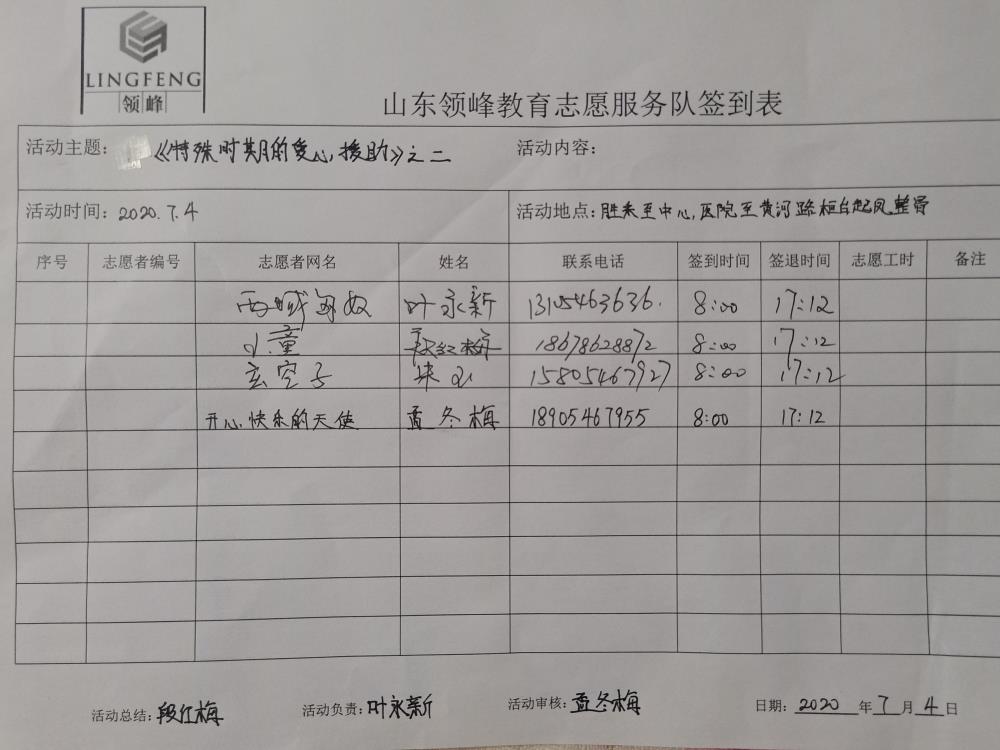 LINGFENG
领峰
山东领峰教育志愿服务队签到表
活动主题: 《特殊时期的爱心援助》之二 活动内容:
活动时间: 2020.7.4 活动地点: 胜东至中心医院至黄河路 起凤整骨
序号 志愿者编号 志愿者网名 姓名 联系电话 签到时间 签退时间 志愿工时 备注
西域 叶永新 13105463636. 8:00 17:12
小童 段红梅 18678628872 8:00 17:12
玄空子 15805467927 8:00 17:12
开心快乐的天使 孟冬梅 18905467955 8:00 17:12
活动总结: 段红梅 活动负责: 叶永新 活动审核: 孟冬梅 日期: 2020 年 7 月 4 日